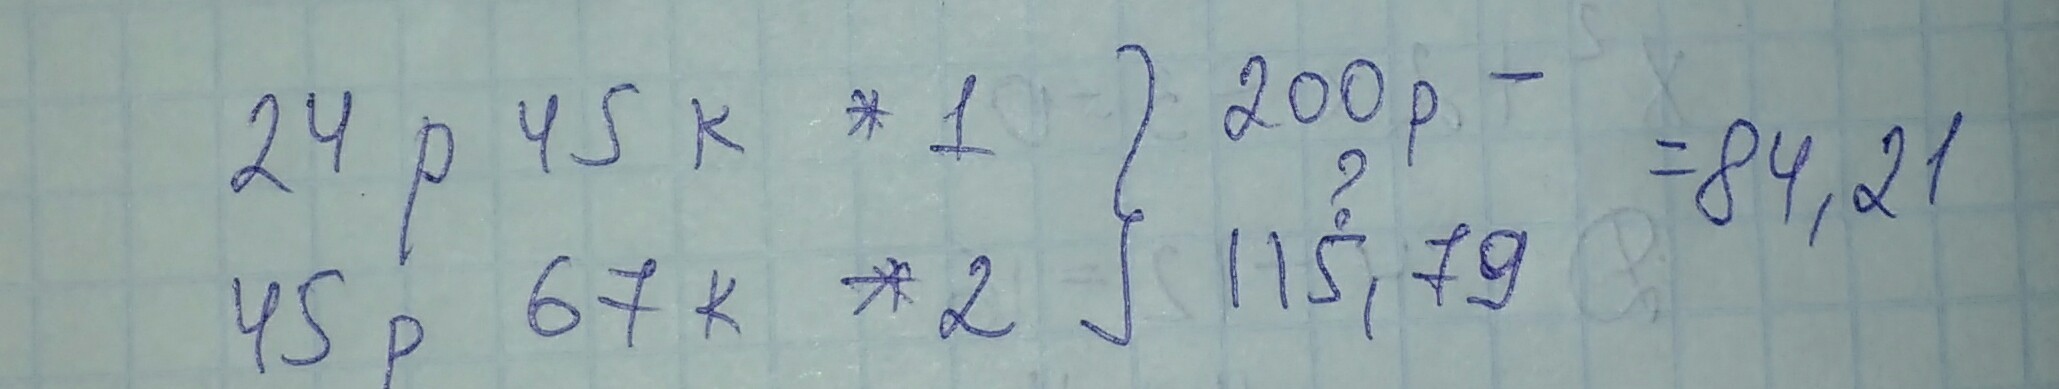 24 р 45 к * 1 } 200р - = 84,21
?
45 р 67 к * 2 115,79